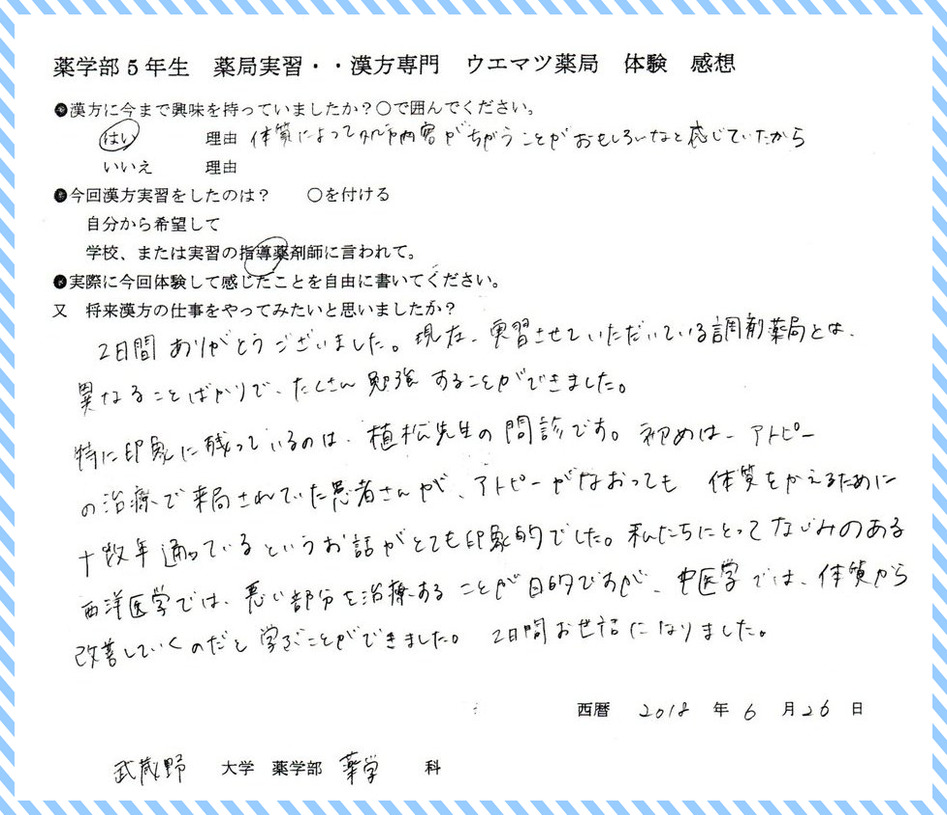 薬学部5年生 薬局実習・・漢方専門 ウエマツ薬局 体験 感想
●漢方に今まで興味を持っていましたか?○で囲んでください。
はい 理由 体質によって 内容がちがうことがおもしろいなと感じていたから
いいえ 理由
●今回漢方実習をしたのは? ○を付ける
自分から希望して
学校、または実習の指導薬剤師に言われて。
●実際に今回体験して感じたことを自由に書いてください。
又 将来漢方の仕事をやってみたいと思いましたか?
2日間ありがとうございました。現在、実習させていただいている調剤薬局とは、
異なることばかりで、たくさん勉強することができました。
特に印象に残っているのは、植松先生の問診です。初めは、アトピー
の治療で来局されていた患者さんが、アトピーがなおっても 体質をかえるために
十数年通っているというお話がとても印象的でした。私たちにとってなじみのある
西洋医学では、悪い部分を治療することが目的ですが、中医学では、体質から
改善していくのだと学ぶことができました。2日間お世話になりました。
西暦 2018 年 6 月 26 日
武蔵野 大学 薬学部 薬学 科